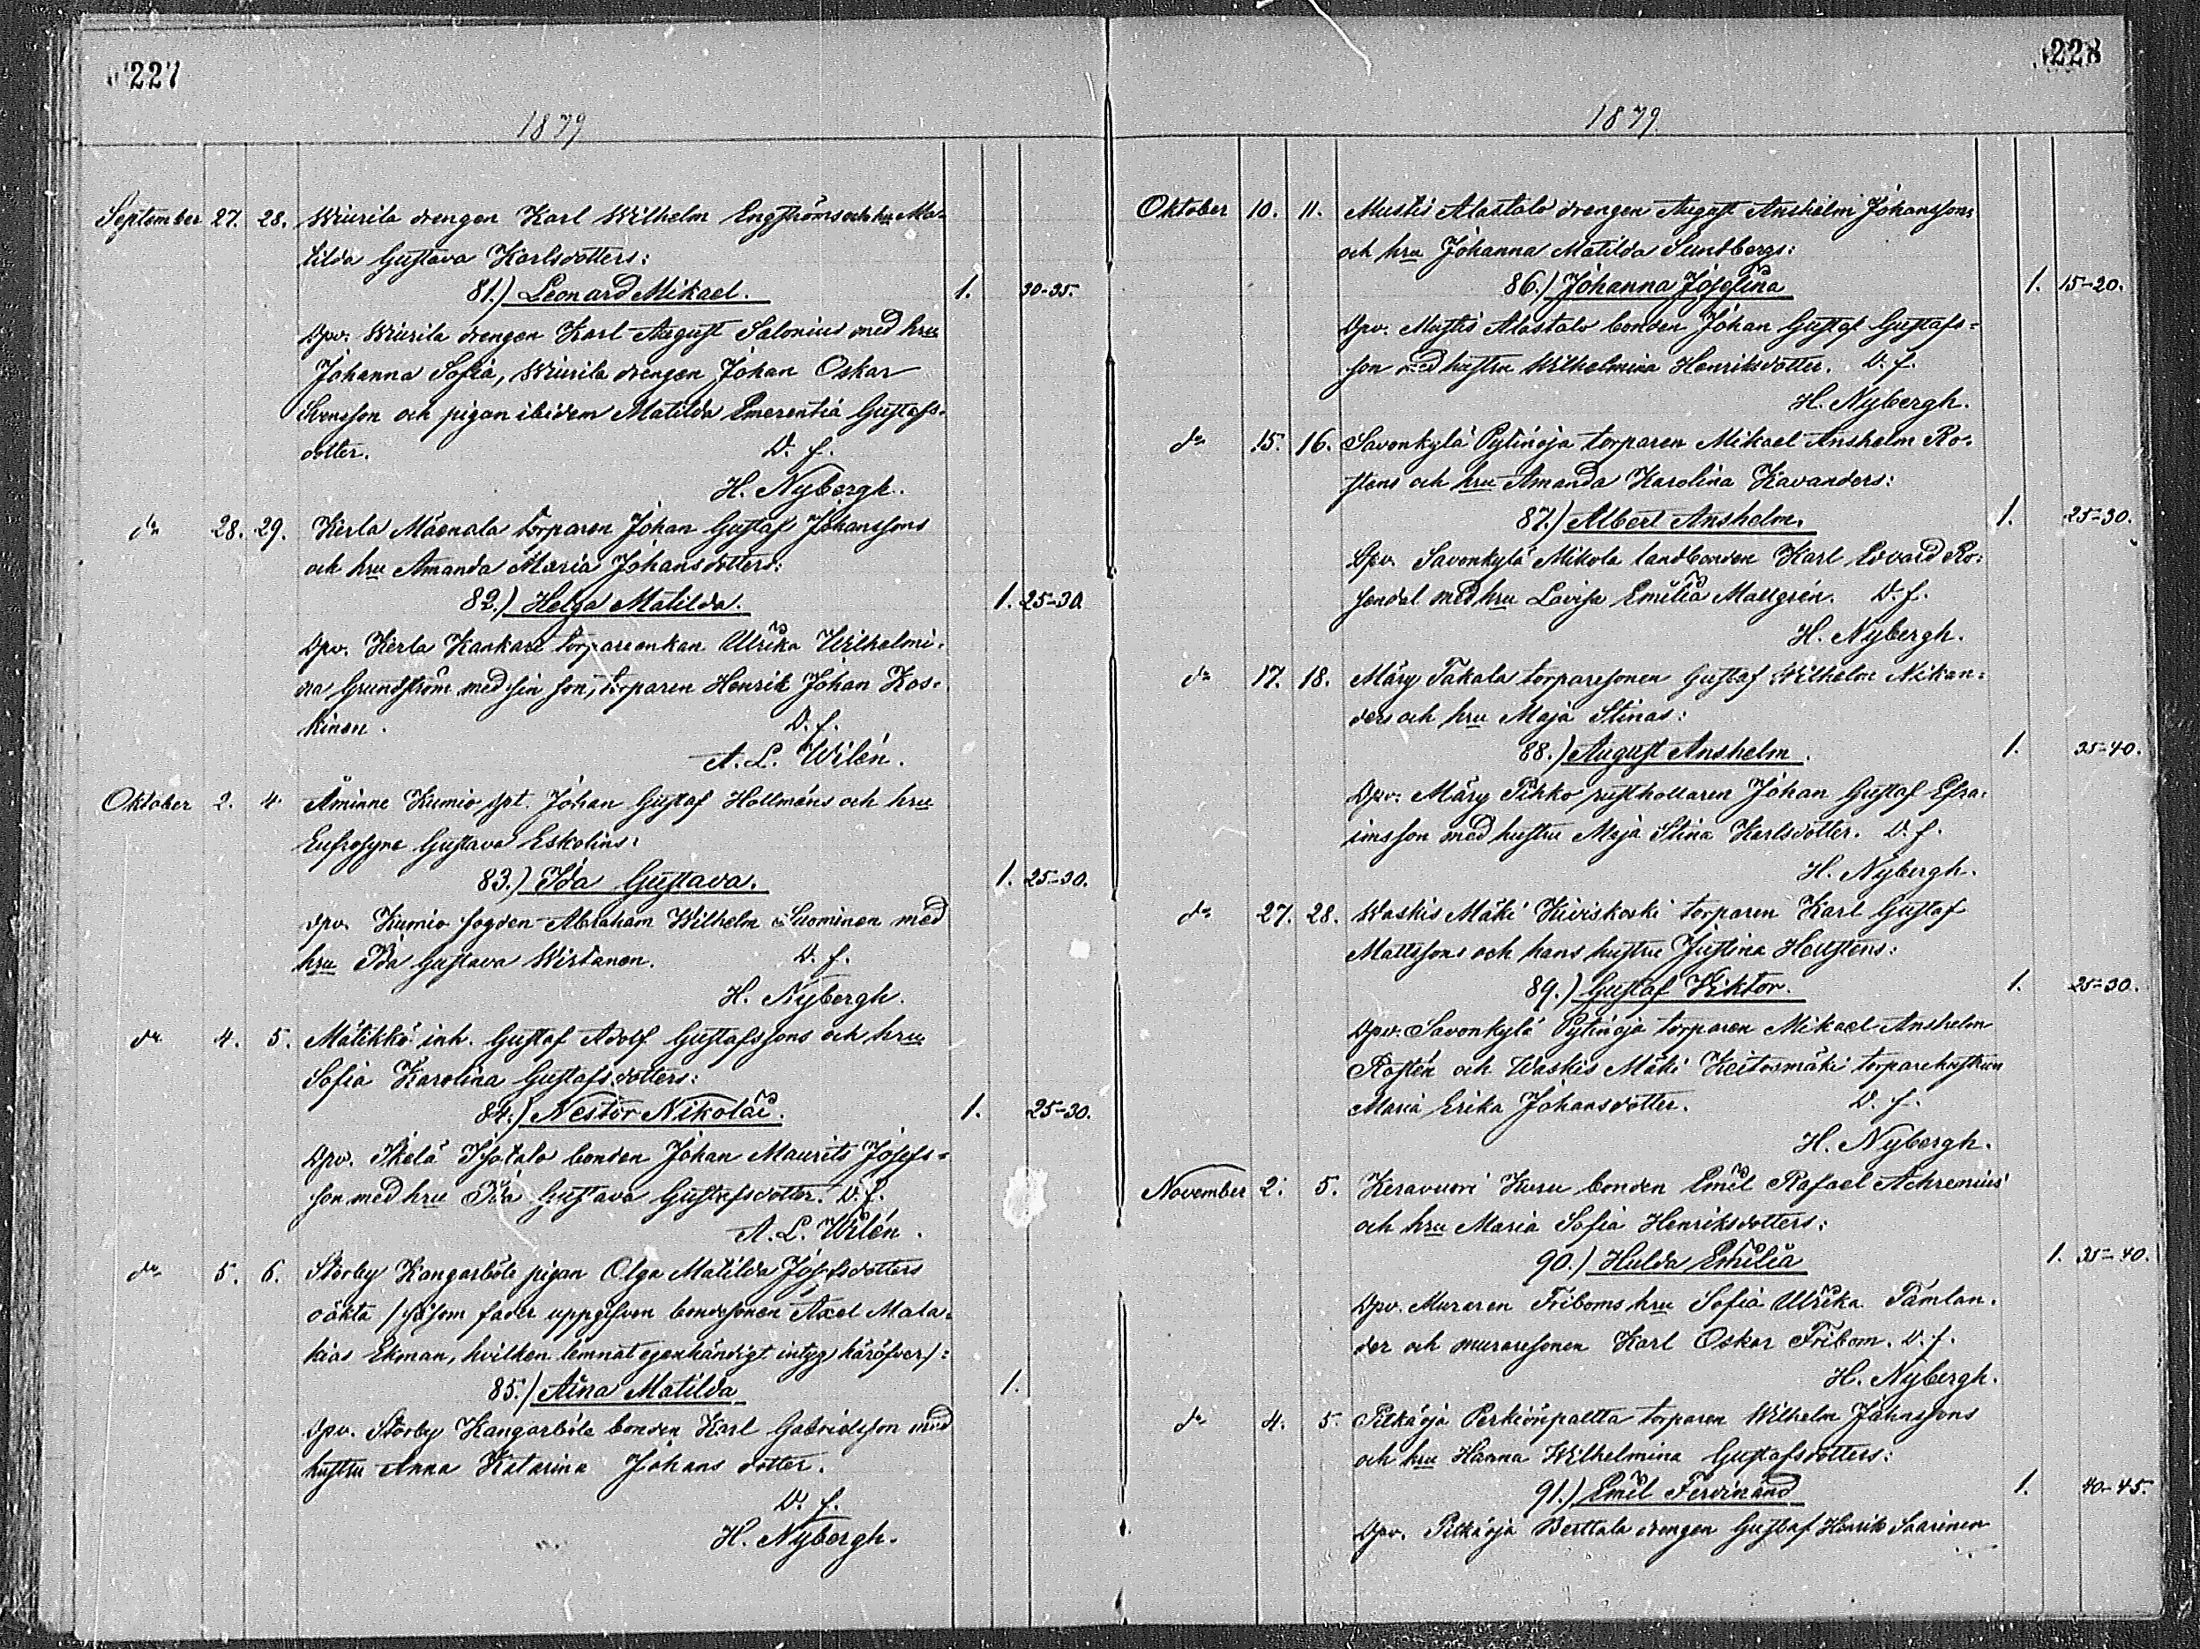 227
1879
September 27. 28. Wiurila drengen Karl Wilhelm Engströms och hru Ma-
tilda Gustava Karlsdotters:
81.) Leonard Mikael. 1. 30-35.
Dpv. Wiurila drengen Karl August Salonius med hru
Johanna Sofia, Wiurila drengen Johan Oskar
Svensson och pigan ibidem Matilda Emerentia Gustafs-
dotter. D. f.
H. Nybergh.
do 28. 29. Kerla Mäenala torparen Johan Gustaf Johanssons
och hru Amanda Maria Johansdotters:
82.) Helga Matilda. 1. 25-30
Dpv. Kerla Kankare torpareenkan Ulrika Wilhelmi-
na Grundström med sin son, torparen Henrik Johan Kos-
kinen. D. f.
A. L. Wilén.
Oktober 2. 4 Åminne Kumio spt. Johan Gustaf Hollméns och hru
Eufrosyne Gustava Eskolins:
83.) Ida Gustava. 1. 25-30.
dpv. Kumio fogden Abraham Wilhelm Suominen med
hru Ida Gustava Wirtanen. D. f.
H. Nybergh.
do 4. 5. Mätikkö inh. Gustaf Adolf Gustafssons och hru
Sofia Karolina Gustafsdotters:
84.) Nestor Nikolai. 1. 25-30.
Dpv. Ikelä Isotalo bonden Johan Maurits Josefs-
son med hru Ida Gustava Gustafsdotter. D. f.
A. L. Wilén.
do 5. 6. Storby Kangarböle pigan Olga Matilda Josefsdotters
oäkta /:såsom fader uppgifven bondesonen Axel Mala-
kias Ekman, hvilken lemnat egenhändigt intyg häröfver/:
85.) Aina Matilda 1.
Dpv. Storby Kangarböle bonden Karl Gabrielsson med
hustru Anna Katarina Johans dotter.
D. f.
H. Nybergh.
228
1879.
Oktober 10. 11. Mustis Alastalo drengen August Anshelm Johanssons
och hru Johanna Matilda Sundbergs:
86.) Johanna Josefina 1. 15-20.
Dpv. Mustis Alastalo bonden Johan Gustaf Gustafs-
son med hustru Wilhelmina Henriksdotter. D. f.
H. Nybergh.
do 15. 16. Savonkylä Pytinoja torparen Mikael Anshelm Ro-
stens och hru Amanda Karolina Kavanders:
87.) Albert Anshelm. 1. 25-30.
Dpv. Savonkylä Mikola landbonden Karl Edvard Ro-
sendal med hru Lovisa Emilia Mallgrén. D. f.
H. Nybergh.
do 17. 18. Märy Takala torparesonen Gustaf Wilhelm Nikan-
ders och hru Maja Stinas:
88.) August Anshelm. 1. 35-40.
Dpv. Märy Pikko rusthollaren Johan Gustaf Efra-
imsson med hustru Maja Stina Karlsdotter. D. f.
H. Nybergh.
do 27. 28. Waskis Mäki Kiviskoski torparen Karl Gustaf
Mattssons och hans hustru Justina Hellstens:
89.) Gustaf Viktor. 1. 25-30.
Dpv. Savonkylä Pytinoja torparen Mikael Anshelm
Rostén och Waskis Mäki Keitosmäki torparehustrun
Maria Erika Johansdotter. D. f.
H. Nybergh.
November 2. 5. Keravuori Kuru bonden Emil Rafael Achrenius
och hru Maria Sofia Henriksdotters:
90.) Hulda Emilia 1. 35-40.
Dpv. Muraren Friboms hru Sofia Ulrika Tamlan-
der och muraresonen Karl Oskar Fribom. D. f.
H. Nybergh.
do 4. 5. Pitkäoja Perkiönpaltta torparen Wilhelm Johanssons
och hru Hanna Wilhelmina Gustafsdotters:
91.) Emil Ferdinand 1. 40-45.
Dpv. Pitkäoja Berttala drengen Gustaf Henrik Saarinen